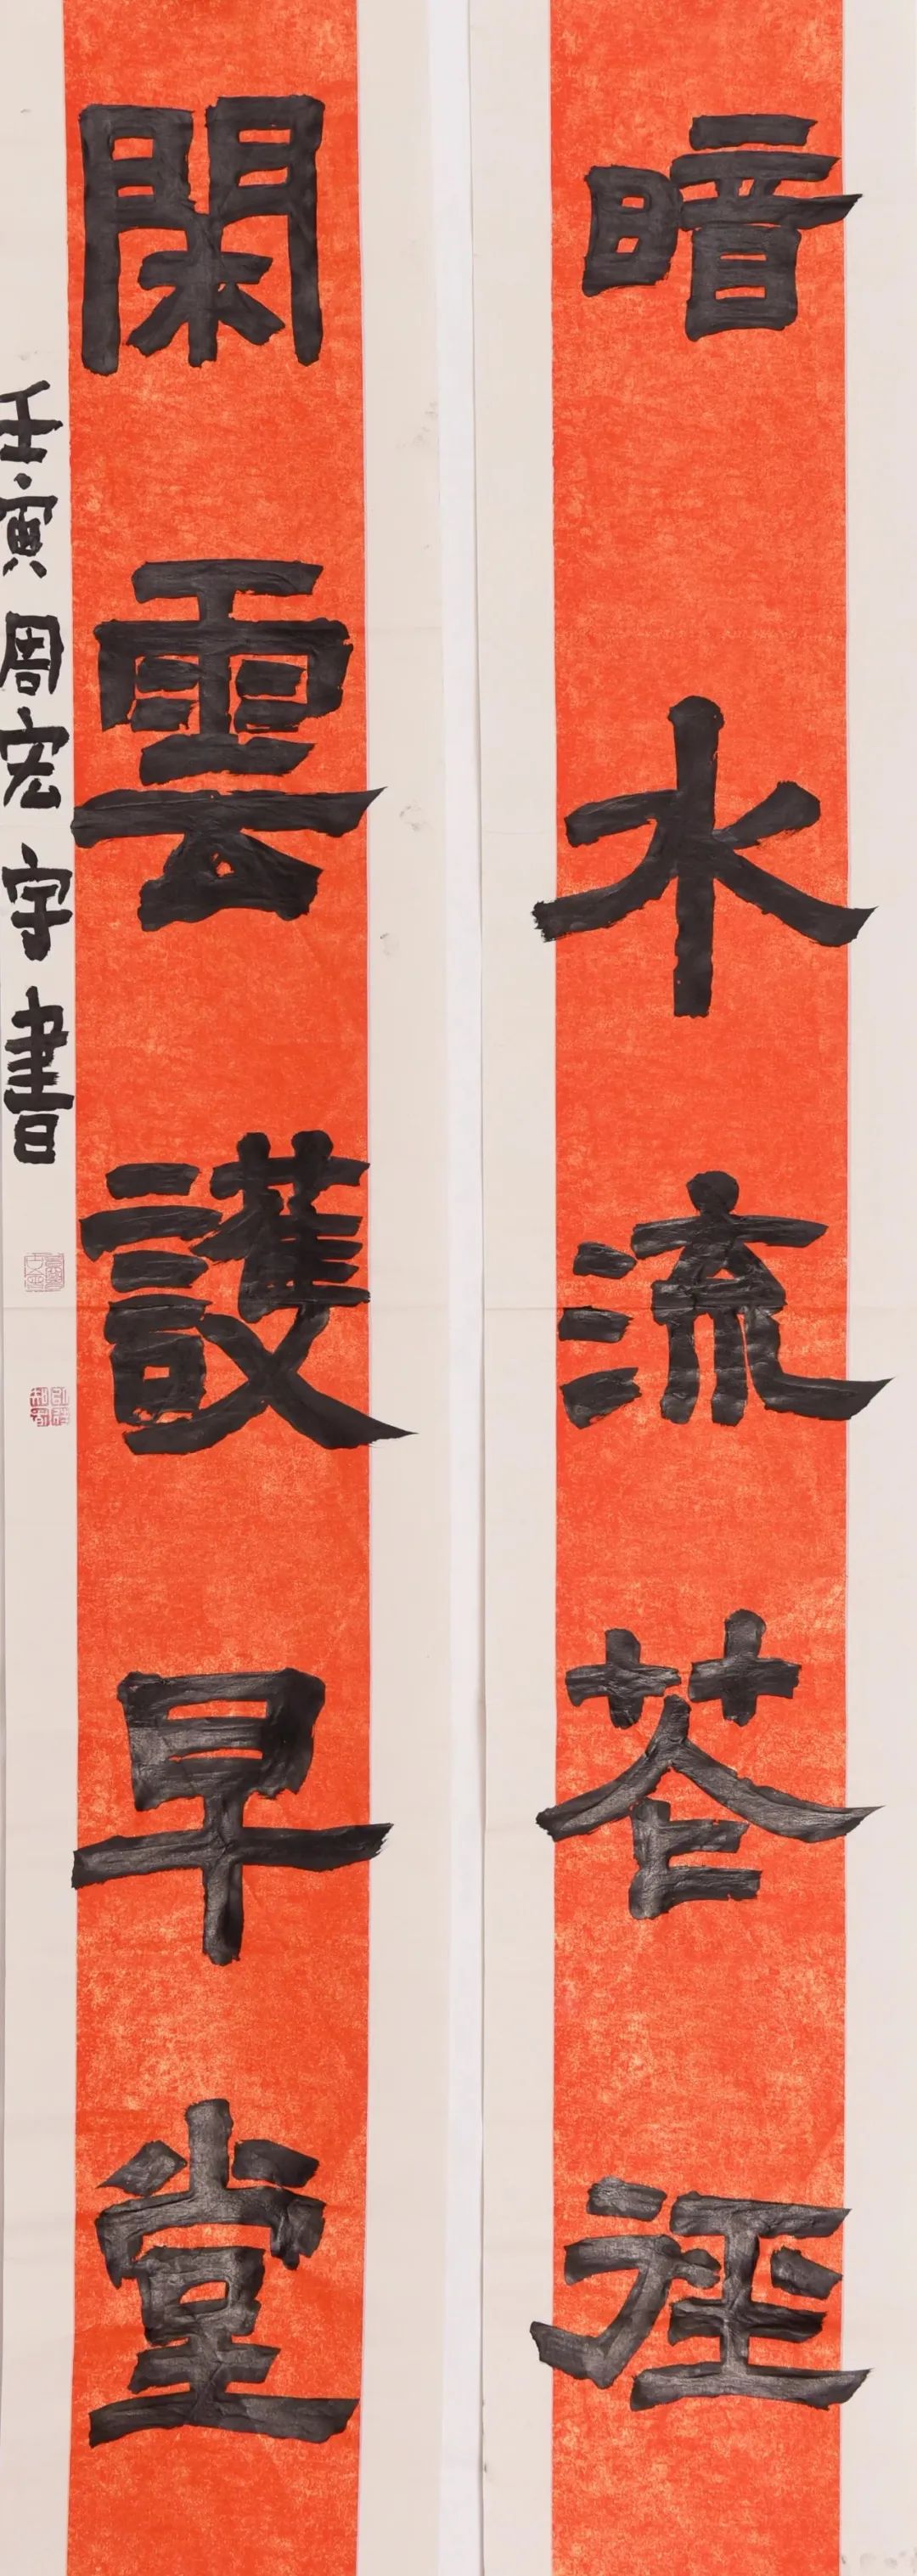 暗水流花徑
閑雲護早堂
壬寅周宏宇書